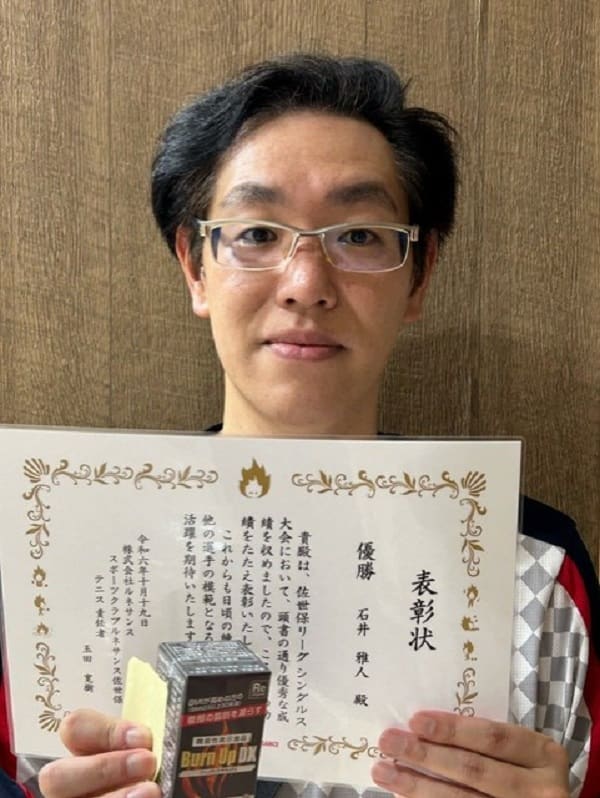 表彰状
優勝
石井 雅人 殿
貴殿は、佐世保リーグ シングルス
大会において、頭書の通り優秀な成
績を収めましたので、こ
績をたたえ表彰いたし
これからも日頃の練
他の選手の模範となる
活躍を期待いたします
令和六年十月十九日
株式会社ルネサンス
スポーツクラブルネサンス佐世保
テニス 責任者
玉田 寛樹
BMIが高めの方の
腹部の脂肪を減らす
機能性表示食品
Burn Up DX
Re